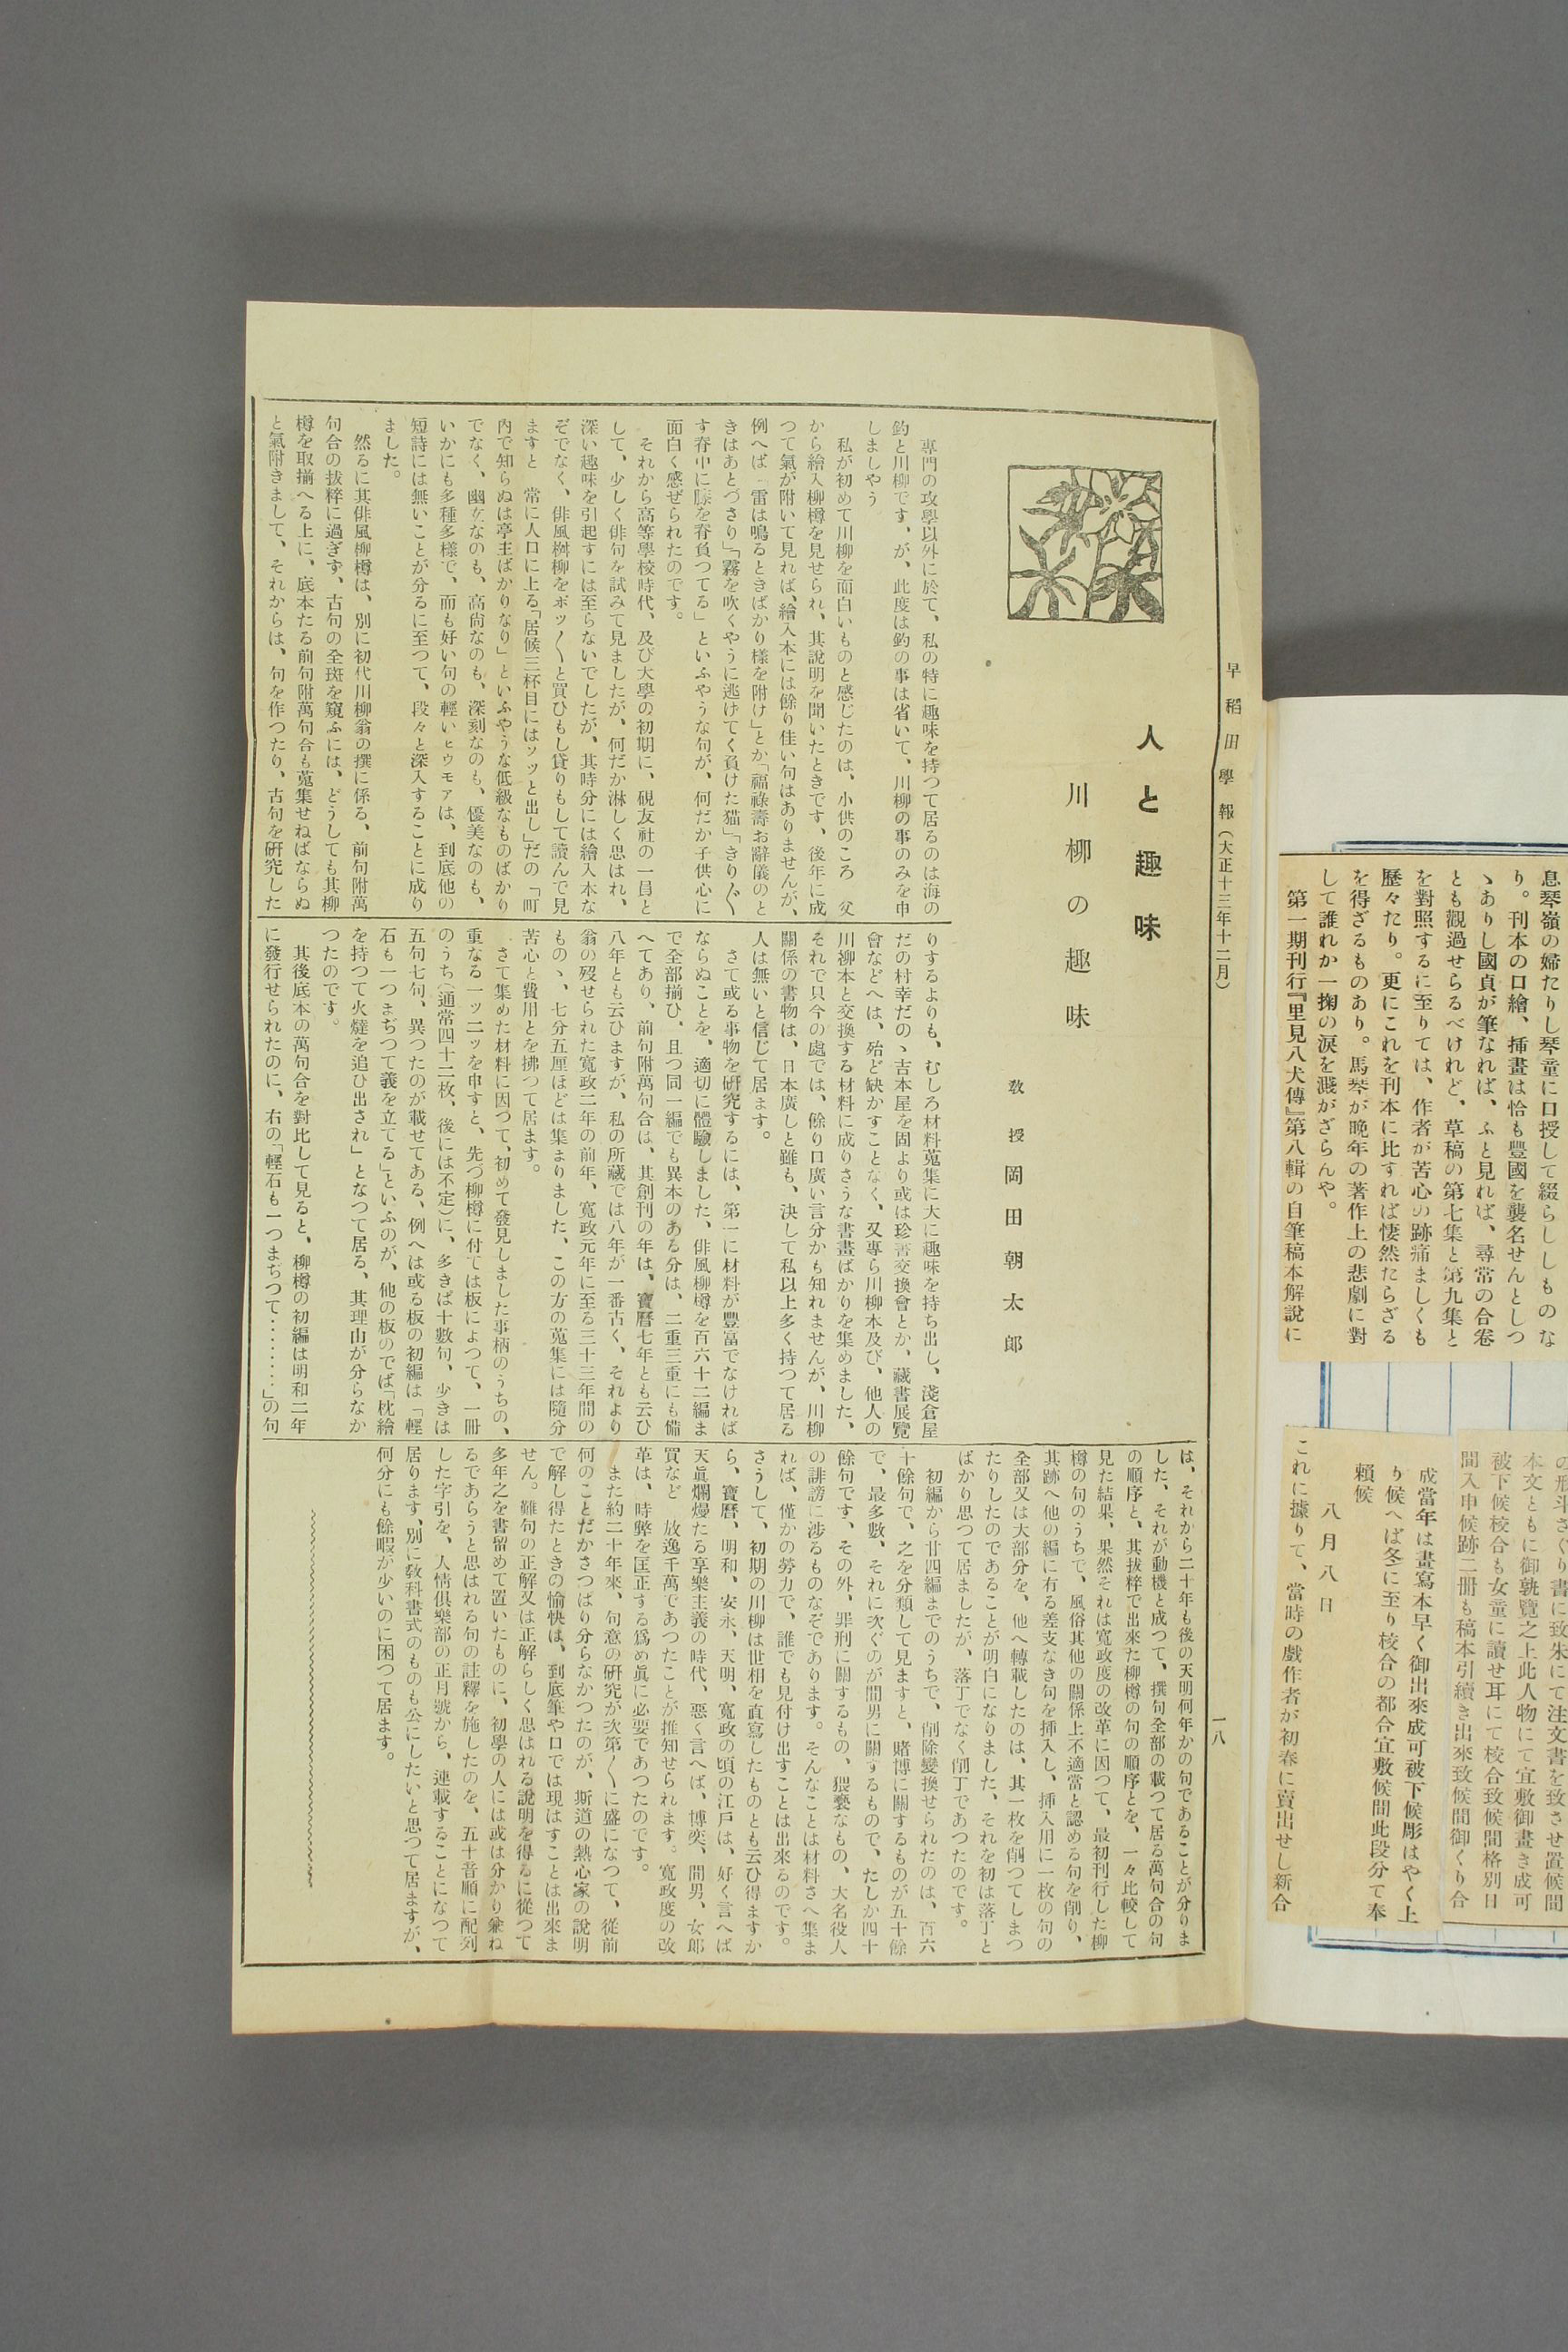 息琴嶺の婦たりし琴童に口授して綴らしものな
り。刊本の口繪、挿畫は恰も豐國を襲名せんとしつ
ゝありし國貞が筆なれば、ふと見れば、尋常の合卷
とも觀過せらるべけれど、草稿の第七集と第九集と
を對照するに至りては、作者が苦心の跡痛ましくも
歷々たり。更にこれを刊本に比すれば悽然たらざる
を得ざるものあり。馬琴が晩年の著作上の悲劇に對
して誰れか一掬の淚を濺がざらんや。
第一期刊行『里見八犬傳』第八輯の自筆稿本解說に
の形斗さぐり書に致朱にて注文書を致させ置候間
本文ともに御覽之上此人物にて宜敷御畫き成可
被下候校合も女童に讀せ耳にて校合致候間格別日
間入申候跡二册も稿本引續き出來致候間御くり合
成當年は畫寫本早く御出來成可被下候彫はやく上
り候へば冬に至り校合の都合宜敷候間此段分て奉
賴候
八月八日
これに據りて、當時の戲作者が初春に賣出せし新合
早稻田學報(大正十三年十二月)
一八
人と趣味
川柳の趣味
敎授 岡田朝太郎
專門の攻學以外に於て、私の特に趣味を持つて居るのは海の
釣と川柳です、が、此度は釣の事は省いて、川柳の事のみを申
しましやう
私が初めて川柳を面白いものと感じたのは、小供のころ 父
から繪入柳樽を見せられ、其說明を聞いたときです、後年に成
つて氣が附いて見れば、繪入本には餘り佳い句はありませんが、
例へば「雷は鳴るときばかり樣を附け」とか「福祿壽お辭儀のと
きはあとづさり」「霧を吹くやうに逃げてく負けた猫」「きり〲
す脊中に膝を脊負つてる」といふやうな句が、何だか子供心に
面白く感ぜられたのです。
それから高等學校時代、及び大學の初期に、硯友社の一員と
して、少しく俳句を試みて見ましたが、何だか淋しく思はれ、
深い趣味を引起すには至らないでしたが、其時分には繪入本な
ぞでなく、俳風柳樽をポッ〱と買ひもし貸りもして讀んで見
ますと 常に人口に上る「居候三杯目にはソッと出し」だの「町
內で知らぬは亭主ばかりなり」といふやうな低級なものばかり
でなく、幽玄なのも、高尙なのも、深刻なのも、優美なのも、
いかにも多種多樣で、而も好い句の輕いヒウモアは、到底他の
短詩には無いことが分るに至つて、段々と深入することに成り
ました。
然るに其俳風柳樽は、別に初代川柳翁の撰に係る、前句附萬
句合の拔粹に過ぎず、古句の全斑を窺ふには、どうしても其柳
樽を取揃へる上に、底本たる前句附萬句合も蒐集せねばならぬ
と氣附きまして、それからは、句を作つたり、古句を硏究した
りするよりも、むしろ材料蒐集に大に趣味を持ち出し、淺倉屋
だの村幸だのゝ吉本屋を固より或は珍書交換會とか、藏書展覽
會などへは、殆ど缺かすことなく、又專ら川柳本及び、他人の
川柳本と交換する材料に成りさうな書畫ばかりを集めました、
それで只今の處では、餘り口廣い言分かも知れませんが、川柳
關係の書物は、日本廣しと雖も、決して私以上多く持つて居る
人は無いと信じて居ます。
さて或る事物を硏究するには、第一に材料が豐富でなければ
ならぬことを、適切に體驗しました、俳風柳樽を百六十二編ま
で全部揃ひ、且つ同一編でも異本のある分は、二重三重にも備
へてあり、前句附萬句合は、其創刊の年は、寶曆七年とも云ひ
八年とも云ひますが、私の所藏では八年が一番古く、それより
翁の歿せられた寬政二年の前年、寬政元年に至る三十三年間の
ものゝ、七分五厘ほどは集まりました、この方の蒐集には隨分
苦心と費用とを拂つて居ます。
さて集めた材料に因つて、初めて發見しました事柄のうちの、
重なる一ッ二ッを申すと、先づ柳樽に付ては板によつて、一册
のうち(通常四十二枚、後には不定)に、多きば十數句、少きは
五句七句、異つたのが載せてある、例へは或る板の初編は「輕
石も一つまぢつて義を立てる」といふのが、他の板のでば「枕繪
を持つて火燵を追ひ出され」となつて居る、其理由が分らなか
つたのです。
其後底本の萬句合を對比して見ると、柳樽の初編は明和二年
に發行せられたのに、右の「輕石も一つまぢつて‥‥‥‥」の句
は、それから二十年も後の天明何年かの句であることが分りま
した、それが動機と成つて、撰句全部の載つて居る萬句合の句
の順序と、其拔粹で出來た柳樽の句の順序とを、一々比較して
見た結果、果然それは寬政度の改革に因つて、最初刊行した柳
樽の句のうちで、風俗其他の關係上不適當と認める句を削り、
其跡へ他の編に有る差支なき句を挿入し、挿入用に一枚の句の
全部又は大部分を、他へ轉載したのは、其一枚を削つてしまつ
たりしたのであることが明白になりました、それを初は落丁と
ばかり思つて居ましたが、落丁でなく削丁であつたのです。
初編から廿四編までのうちで、削除變換せられたのは、百六
十餘句で、之を分類して見ますと、賭博に關するものが五十餘
で、最多數、それに次ぐのが間男に關するもので、たしか四十
餘句です、その外、罪刑に關するもの、猥褻なもの、大名役人
の誹謗に涉るものなぞであります。そんなことは材料さへ集ま
れば、僅かの勞力で、誰でも見付け出すことは出來るのです。
さうして、初期の川柳は世相を直寫したものとも云ひ得ますか
ら、寶曆、明和、安永、天明、寬政の頃の江戶は、好く言へば
天眞爛熳たる享樂主義の時代、惡く言へば、博奕、間男、女郞
買など 放逸千萬であつたことが推知せられます。寬政度の改
革は、時弊を匡正する爲め眞に必要であつたのです。
また約二十年來、句意の硏究が次第〱に盛になつて、從前
何のことだかさつぱり分らなかつたのが、斯道の熱心家の說明
で解し得たときの愉快は、到底筆や口では現はすことは出來ま
せん。難句の正解又は正解らしく思はれる說明を得るに從つて
多年之を書留めて置いたものに、初學の人には或は分かり兼ね
るであらうと思はれる句の註釋を施したのを、五十音順に配列
した字引を、人情俱樂部の正月號から、連載することになつて
居ります、別に敎科書式のものも公にしたいと思つて居ますが、
何分にも餘暇が少いのに困つて居ます。